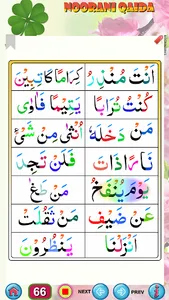 NOORANI QAIDA
اَنْتَ مُنْذِرُ كِرَامًا كَاتِبِيْنَ
كُنْتُ تُرَابًا يَتِيْمًا فَاٰوٰى
مَنْ دَخَلَهٗ اُنْثٰى مِنْ شَيْءٍ
نَارًا ذَاتَ فَلَنْ تَجِدَ
يَوْمَ يُنْفَخُ مَنْ طَغٰى
عَنْ ضَيْفِ مَنْ ثَقُلَتْ
اَنْزَلْنَا يَنْظُرُوْنَ
66 NEXT PREV